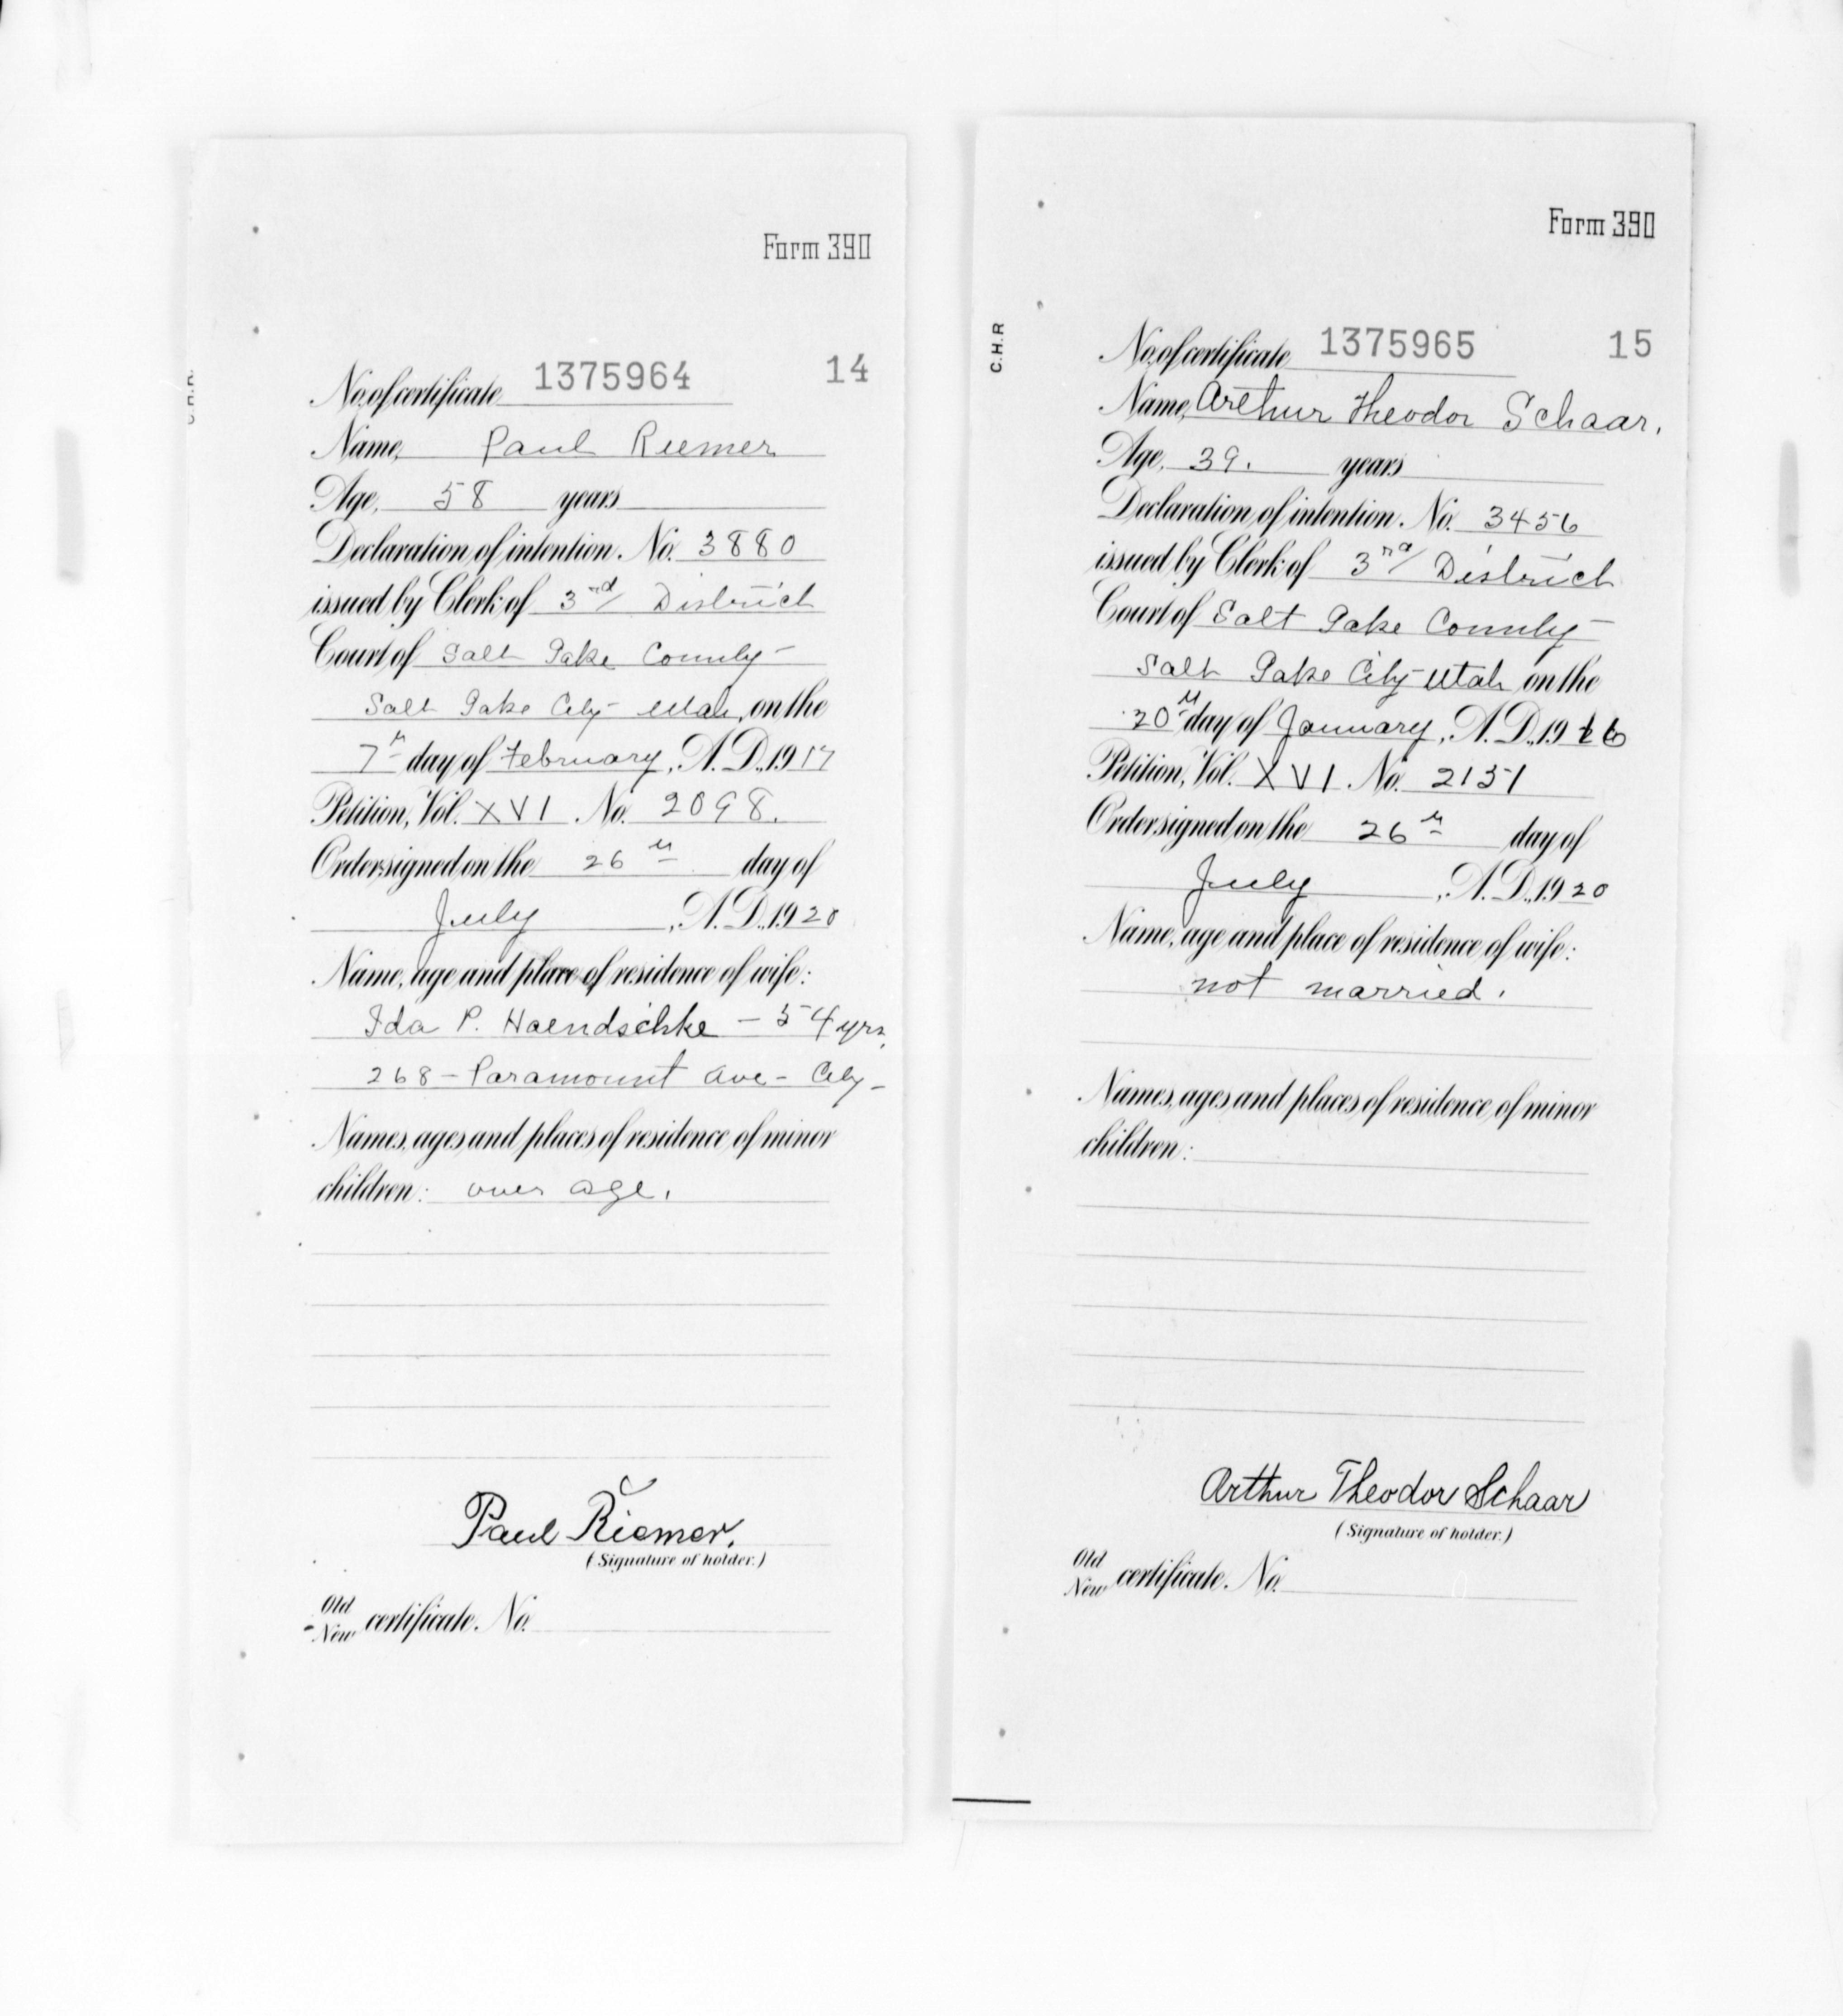 Form 390
C.H.R.
No. of certificate 1375964 14
Name, Paul Riemer
Age, 58 years
Declaration of intention, No. 3880
issued by Clerk of 3rd District
Court of Salt Lake County -
Salt Lake City - Utah, on the
7th day of February, A.D., 1917
Petition, Vol. XVI No. 2098.
Order signed on the 26th day of
July, A.D., 1920
Name, age and place of residence of wife:
Ida P. Haendschke - 54 yrs.
268 - Paramount Ave - City -
Names, ages and places of residence of minor
children: over age.
Paul Riemer.
(Signature of holder.)
Old
New certificate, No.
Form 390
C.H.R
No. of certificate 1375965 15
Name, Arthur Theodor Schaar.
Age, 39. years
Declaration of intention, No. 3456
issued by Clerk of 3rd District
Court of Salt Lake County -
Salt Lake City - Utah on the
20th day of January, A.D., 1916
Petition, Vol. XVI No. 2151
Order signed on the 26th day of
July, A.D., 1920
Name, age and place of residence of wife:
not married.
Names, ages and places of residence of minor
children:
Arthur Theodor Schaar
(Signature of holder.)
Old
New certificate, No.